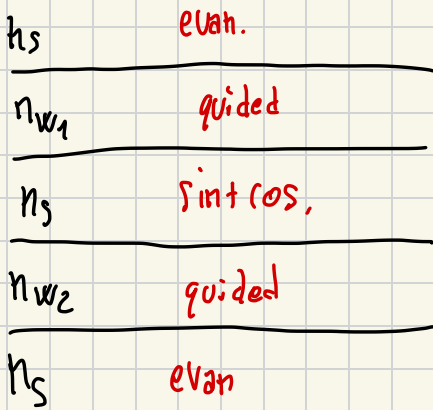 ns evan.
nw1 guided
ns sin+cos,
nw2 guided
ns evan